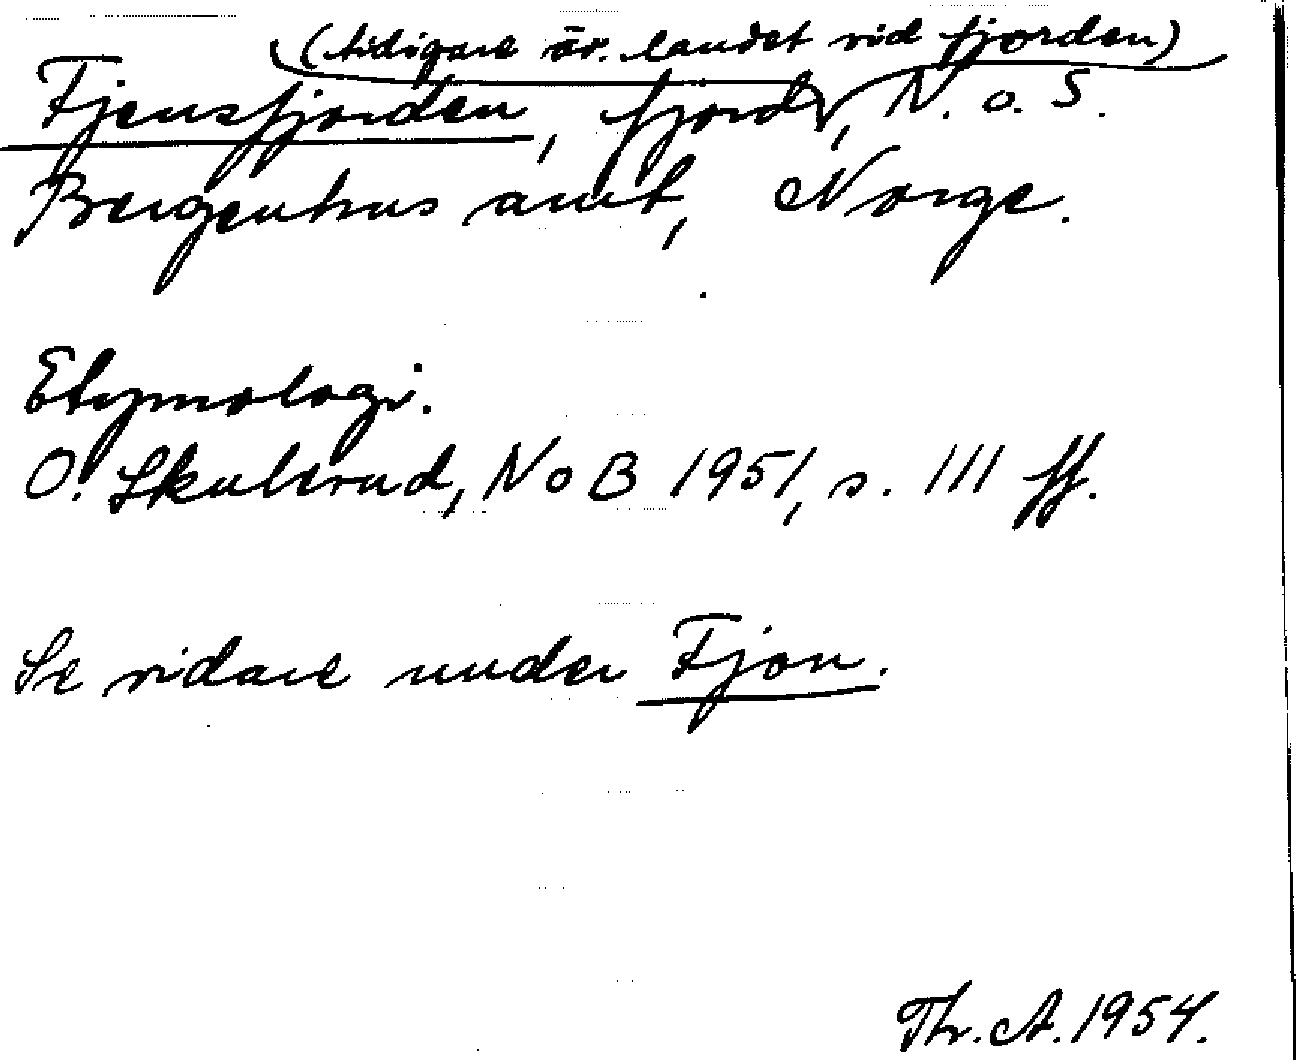 (tidigare äv. landet vid fjorden)
Fjensfjorden, fjord, N. o. S.
Bergenhus amt, Norge.
Etymologi.
O. Skulerud, NoB 1951, s. 111 ff.
Se vidare under Fjon.
Thr. A. 1954.